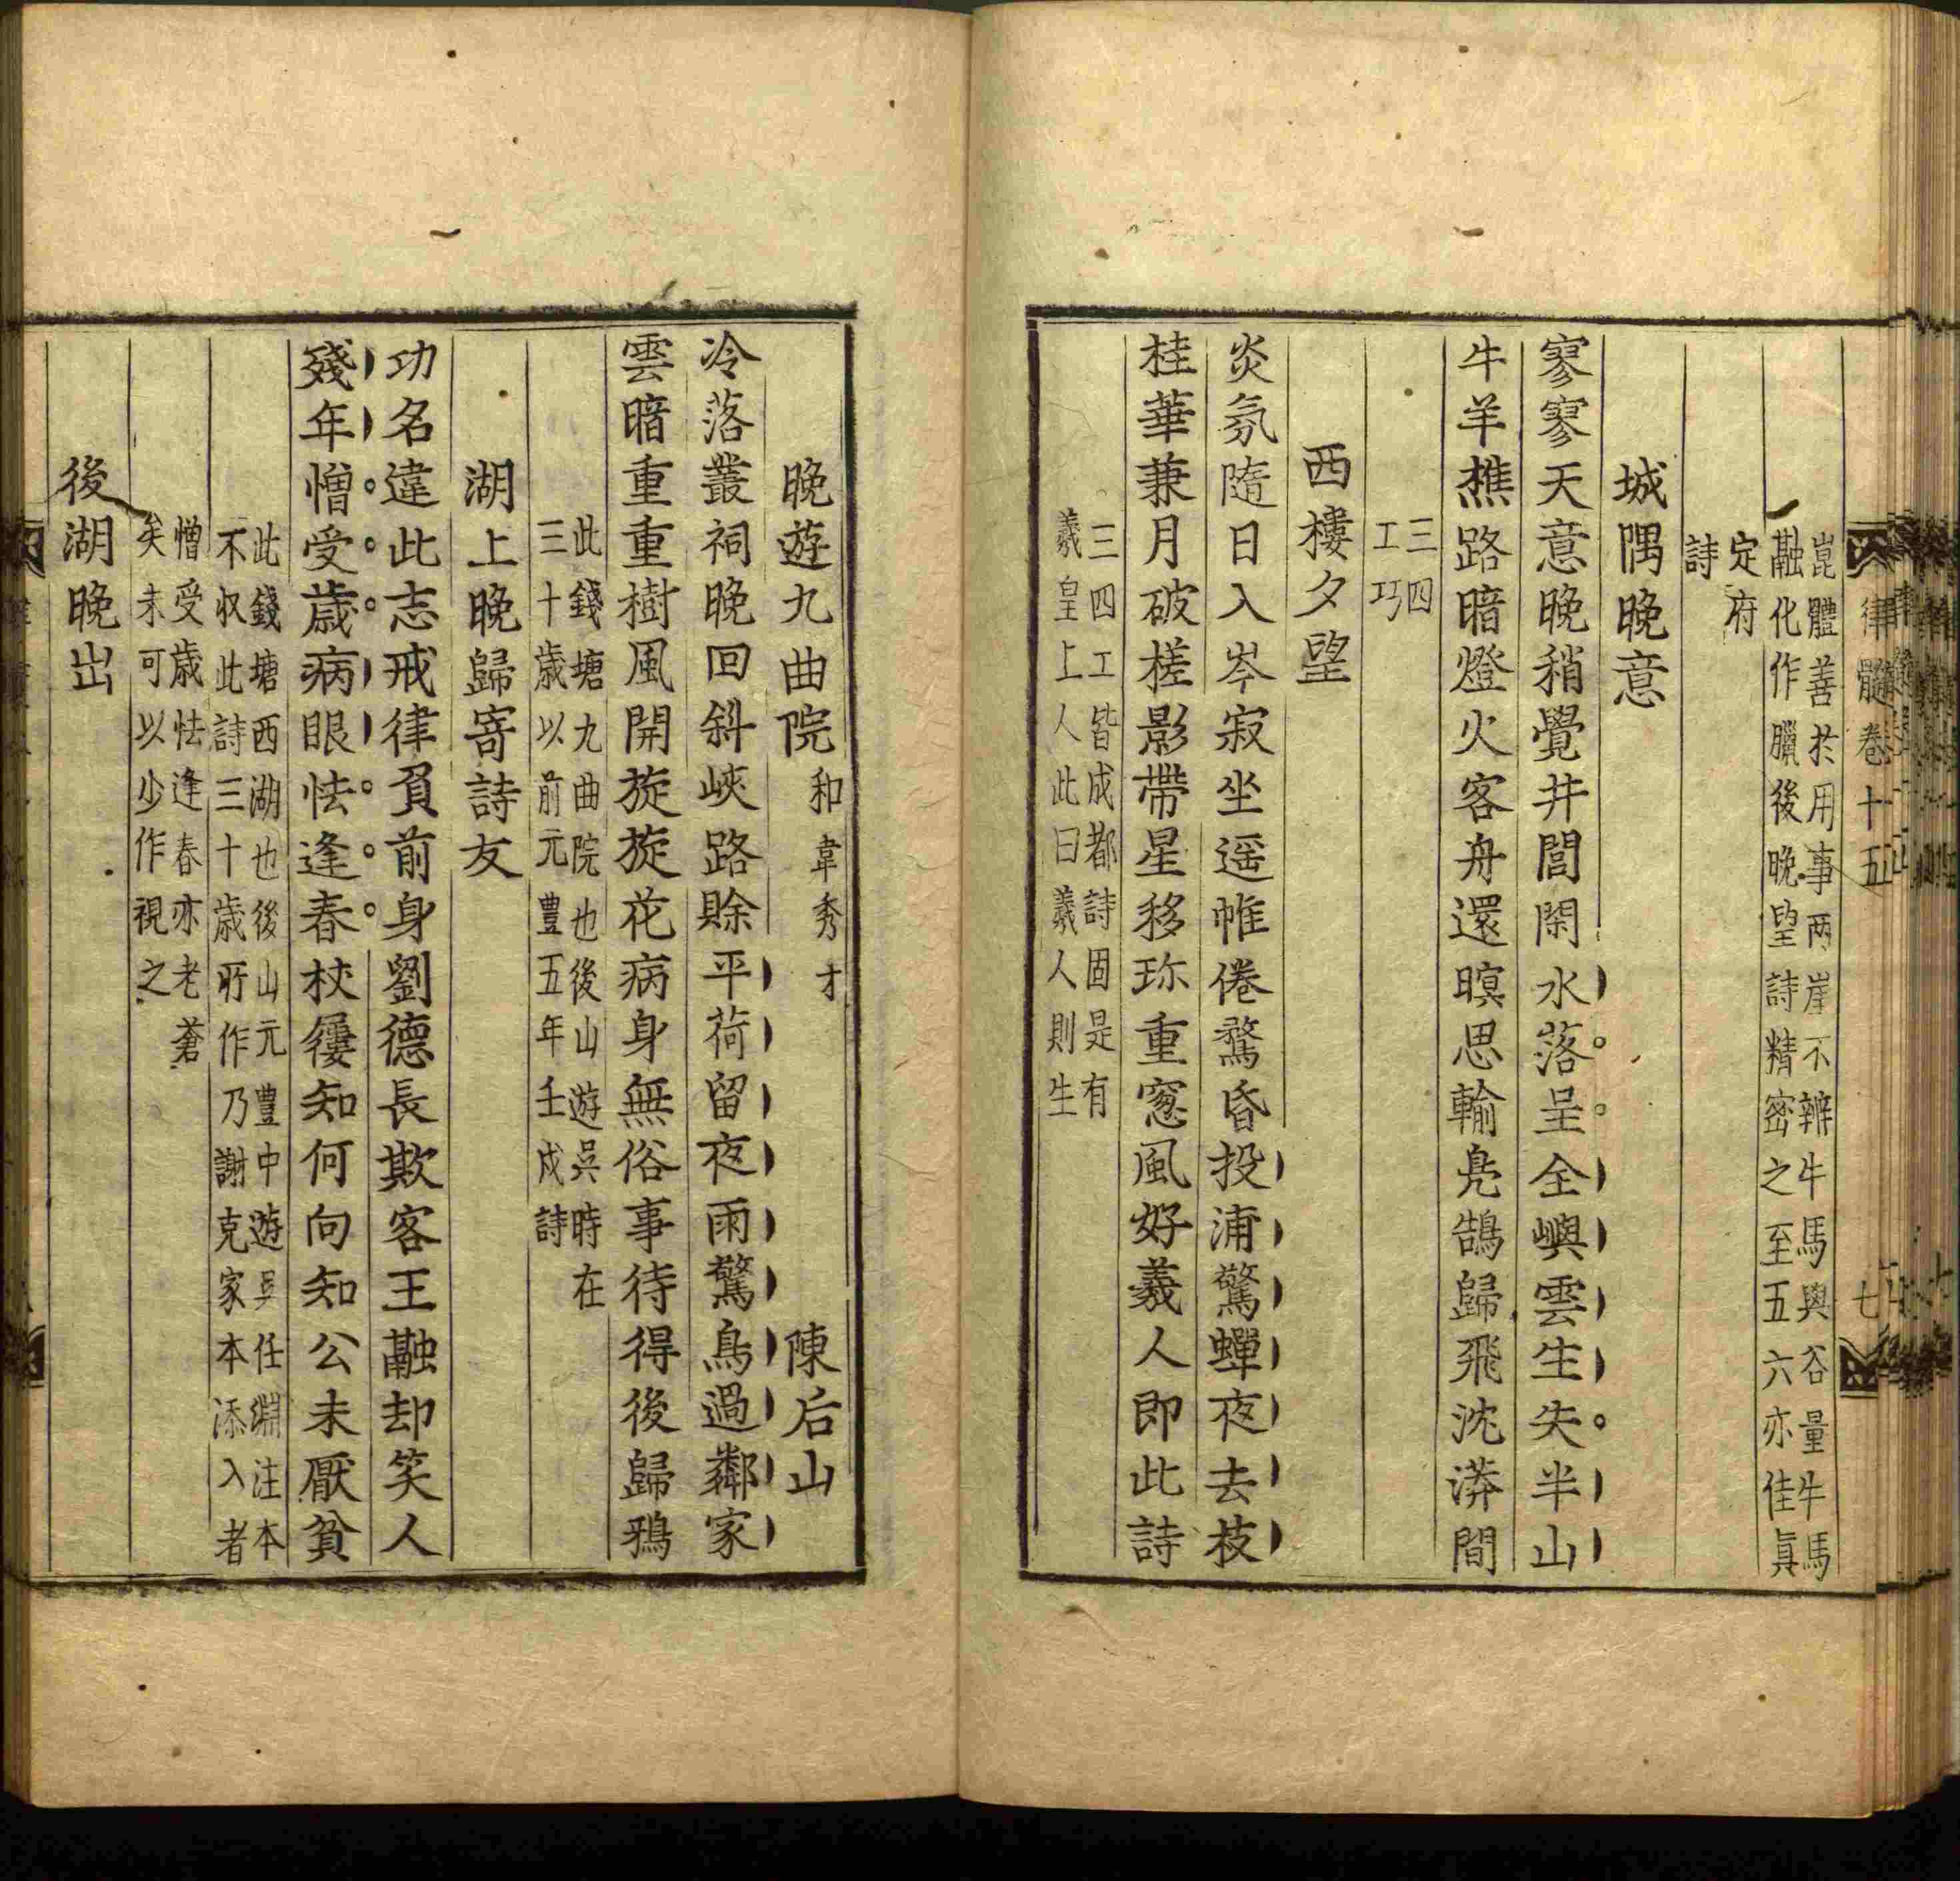 律髓卷十五
七
崑體善於用事兩崖不辨牛馬與谷量牛馬
融化作臘後晚望詩精密之至五六亦佳真
定府
詩
城隅晚意
寥寥天意晚稍覺井閭閑水落呈全嶼雲生失半山
牛羊樵路暗燈火客舟還暝思輸鳧鵠歸飛沈漭間
三四
工巧
西樓夕望
炎氛隨日入岑寂坐遥帷倦鶩昏投浦驚蟬夜去枝
桂華兼月破槎影帶星移珎重窻風好羲人即此詩
三四工皆成都詩固是有
羲皇上人此曰羲人則生
晚遊九曲院和韋秀才 陳后山
冷落叢祠晚回斜峽路賖平荷留夜雨驚鳥過鄰家
雲暗重重樹風開旋旋花病身無俗事待得後歸鴉
此錢塘九曲院也後山遊吳時在
三十歲以前元豊五年壬戌詩
湖上晚歸寄詩友
功名違此志戒律負前身劉德長欺客王融却笑人
殘年憎受歲病眼怯逢春杖屨知何向知公未厭貧
此錢塘西湖也後山元豊中遊吳任淵注本
不収此詩三十歲所作乃謝克家本添入者
憎受歲怯逢春亦老蒼
矣未可以少作視之
後湖晚出